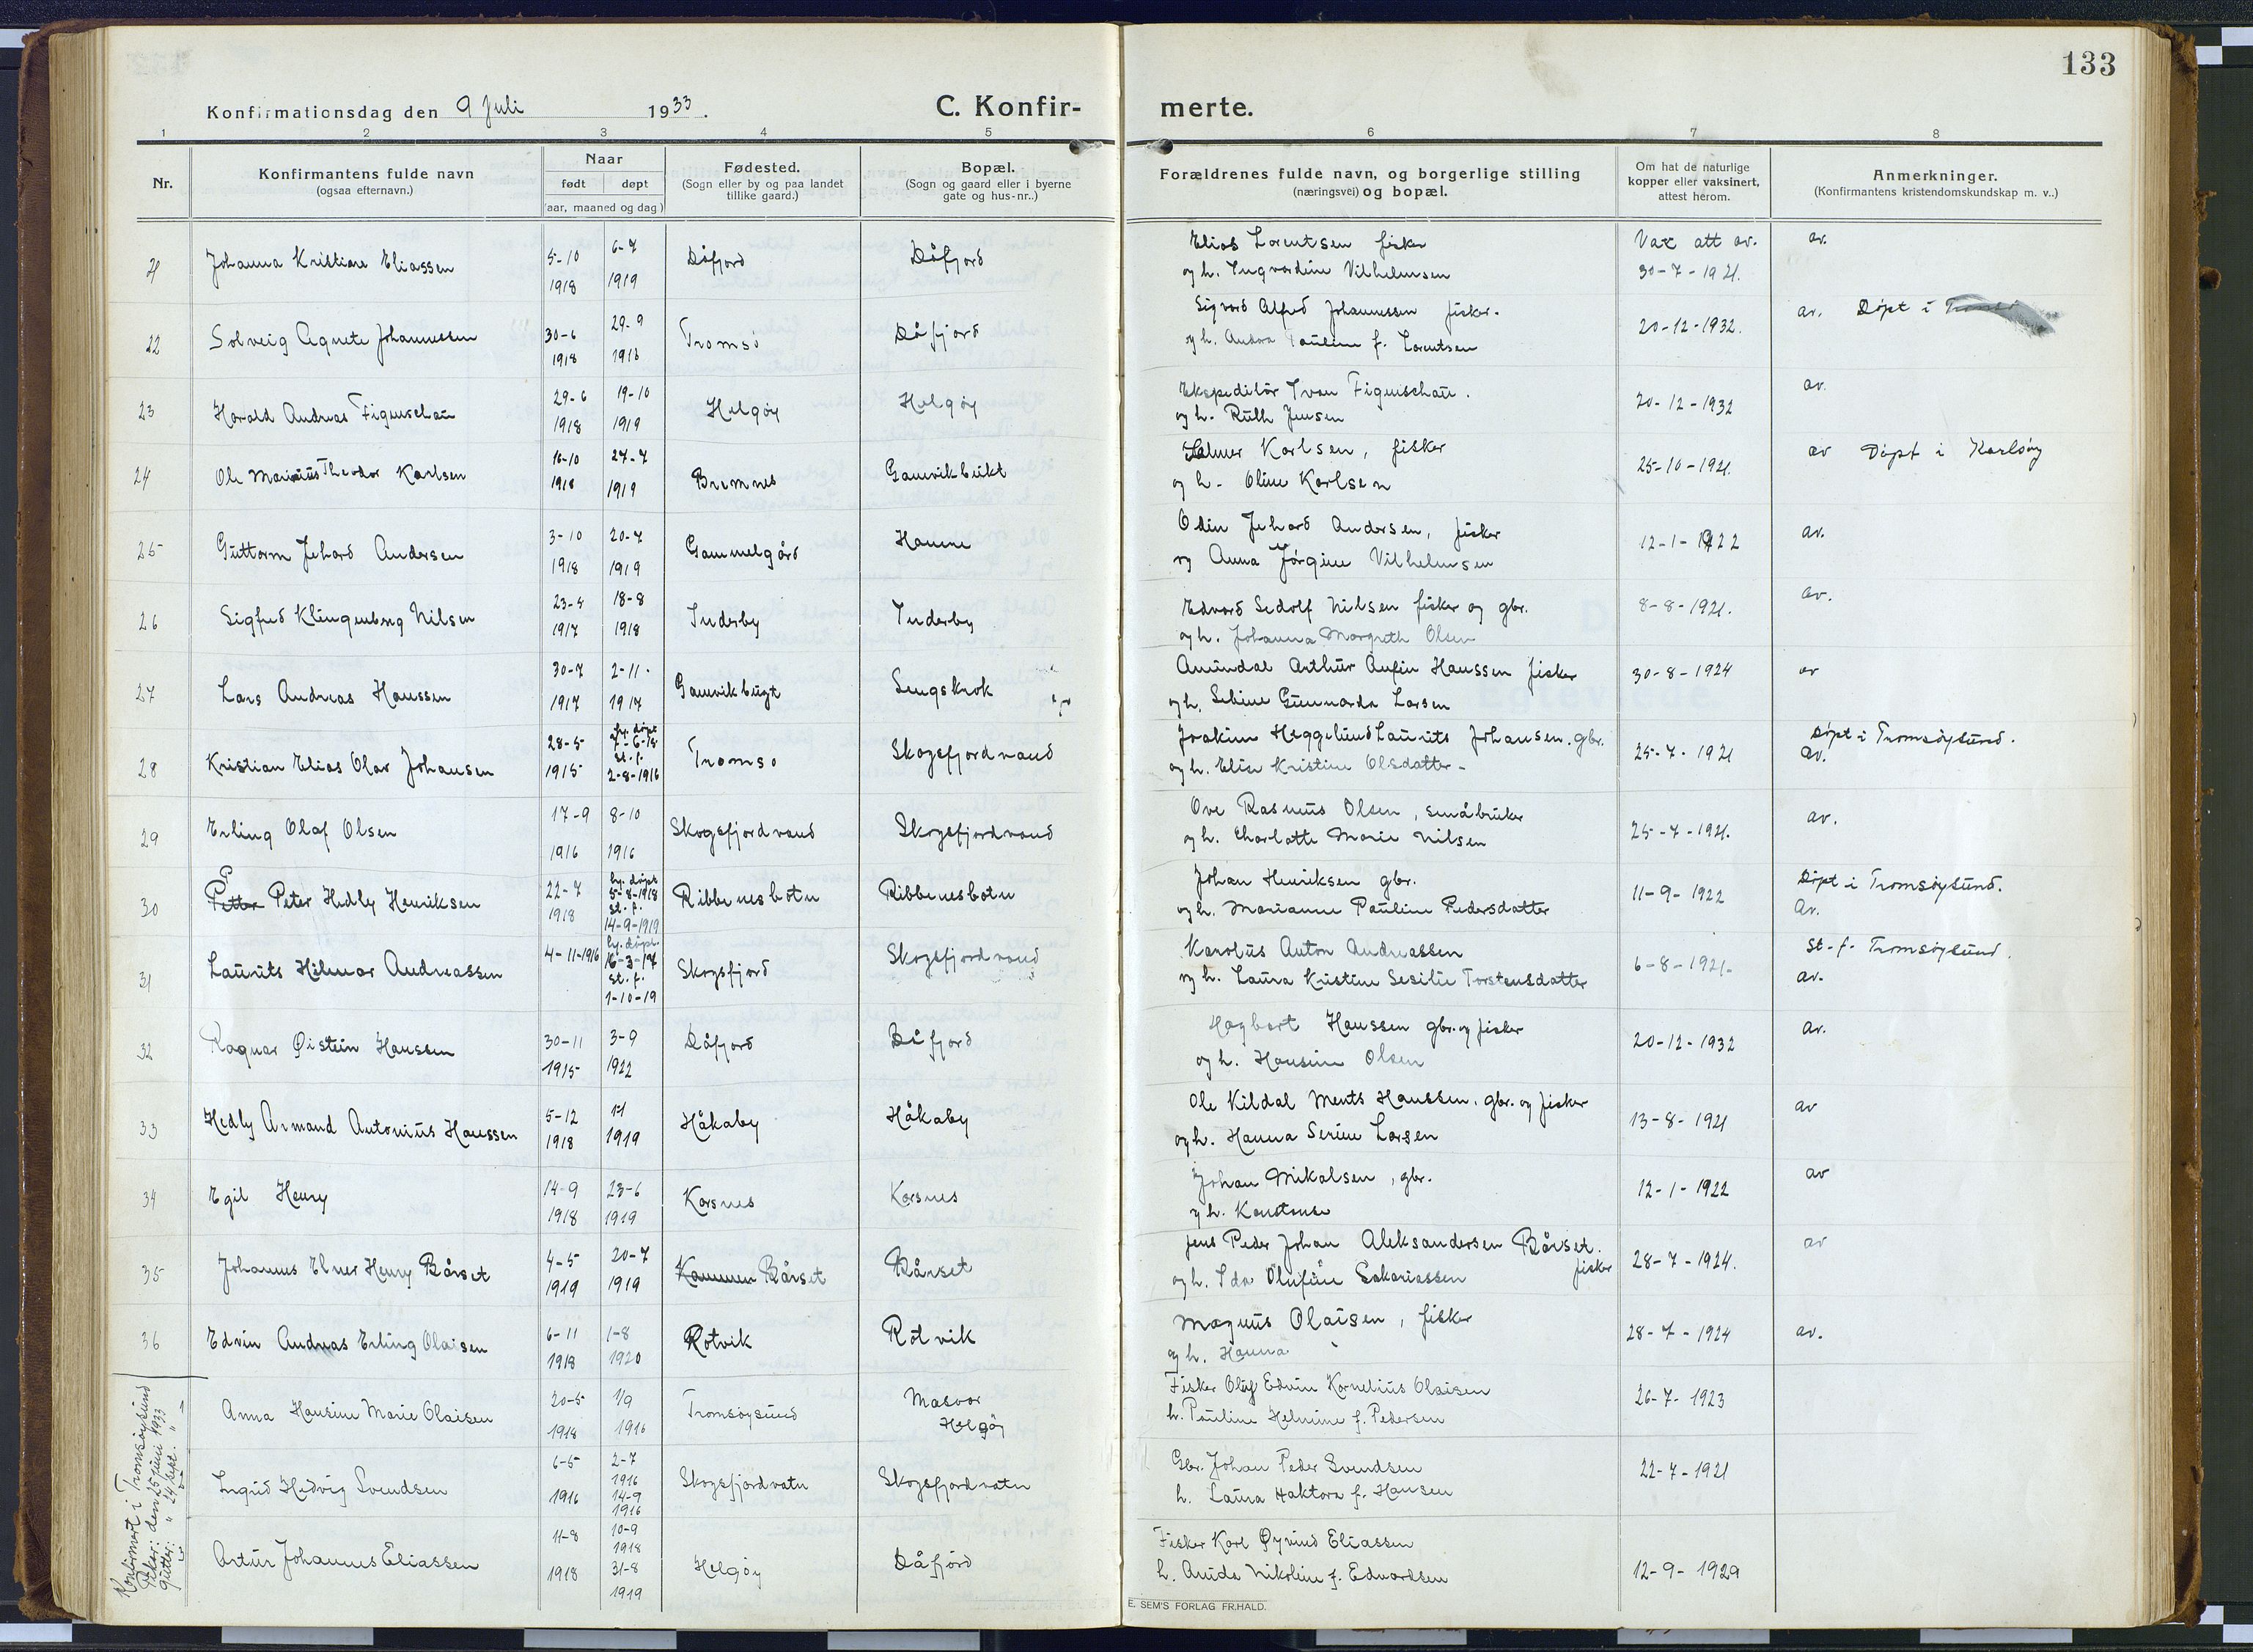 133
Konfirmationsdag den 9 Juli 1933.
C. Konfir-
merte.
1 2 3 4 5 6 7 8
Nr.
Konfirmantens fulde navn
(ogsaa efternavn.)
Naar
født døpt
(aar, maaned og dag)
Fødested.
(Sogn eller by og paa landet
tillike gaard.)
Bopæl.
(Sogn og gaard eller i byerne
gate og hus-nr..)
Forældrenes fulde navn, og borgerlige stilling
(næringsvei) og bopæl.
Om hat de naturlige
kopper eller vaksinert,
attest herom.
Anmerkninger.
(Konfirmantens kristendomskundskap m. v..)
21 Johanna Kristiane Eliassen 5-10 1918 6-7 1919 Dåfjord Dåfjord
Elias Lorentsen fisker
og h. Ingvardine Vilhelmsen
Vax att av. 30-7-1921. av.
22 Solveig Agnete Johannessen 30-6 1918 29-9 1918 Tromsö Dåfjord
Sigvard Alfred Johannessen fisker.
og h. Andora Pauline f. Lorentsen
20-12-1932. av. Døpt i
23 Harald Andreas Figenschau 29-6 1918 19-10 1919 Helgöy Helgöy
Ekspeditör Ivan Figenschau.
og h. Ruth Jensen
20-12-1932 av.
24 Ole Marius Theodor Karlsen 16-10 1918 27-7 1919 Bremnes Gamvikbukt
Halmer Karlsen, fisker
og h. Oline Karlsen
25-10-1921. av Døpt i Karlsöy
25 Guttorm Jehard Andersen 3-10 1918 20-7 1919 Gammelgård Hamne
Odin Jehard Andersen, fisker
og Anna Jörgine Vilhelmsen
12-1-1922 av.
26 Sigfred Klingenberg Nilsen 23-4 1917 18-8 1918 Inderby Inderby
Edvard Sedolf Nilsen fisker og gbr.
og h. Johanna Margreth Olsen
8-8-1921. av.
27 Lars Andreas Hanssen 30-7 1917 2-11. 1917 Gamvikbugt Sengskrok
Amandal Arthur Anfin Hanssen fisker
og h. Sebine Gunnarda Larsen
30-8-1924 av
28 Kristian Elias Olav Johansen 28-5 1915 hj. døpt 7-6-15 st. f. 2-8-1916 Tromsö Skogsfjordvand
Joakim Heggelund Laurits Johansen. gbr.
og h. Elise Kristine Olsdatter-
25-7-1921 Døpt i Tromsöysund. av.
29 Erling Olaf Olsen 17-9 1916 8-10 1916 Skogsfjordvand Skogsfjordvand
Ove Rasmus Olsen, småbruker
og h. Charlotte Marie Nilsen
25-7-1921. av.
30 Petter Peter Hedly Henriksen 22-7 1918 hj. döpt 5-8-1918 st. f. 14-9-1919 Ribbenesbotn Ribbenesbotn
Johan Henriksen gbr.
og h. Marianne Pauline Pedersdatter
11-9-1922 Døpt i Tromsöysund. av.
31 Laurits Hilmar Andreassen 4-11-1916 hj. døpt. 16-3-17 st. f. 1-10-19 Skogsfjord Skogsfjordvand
Karolus Anton Andreassen
og h. Laura Kristine Sesilie Torstensdatter
6-8-1921- St. f. Tromsöysund. av.
32 Ragnar Öistein Hanssen 30-11 1915 3-9 1922 Dåfjord Dåfjord
Hagbart Hanssen gbr. og fisker
og h. Hansine Olsen
20-12-1932 av.
33 Hedly Armand Antonius Hanssen 5-12 1918 1919 Håkaby Håkaby
Ole Kildal Ments Hanssen, gbr. og fisker
og h. Hanna Serine Larsen
13-8-1921 av
34 Egil Henry 14-9 1918 23-6 1919 Korsnes Korsnes
Johan Mikalsen, gbr.
og h. Konstanse
12-1-1922 av
35 Johannes Elmer Henry Bårset 4-5 1919 20-7 1919 Kammen Bårset Bårset
Jens Peder Johan Aleksandersen Bårset. fisker
og h. Ida Olufine Sakariassen
28-7-1924. av
36 Edvin Andreas Erling Olaisen 6-11 1918 1-8 1920 Rotvik Rotvik
Magnus Olaisen, fisker
og h. Hanna
28-7-1924 av.
Konfirmert i Tromsöysund
Piker: den 25 juni 1933
Gutter: " 24 sept. "
Anna Hansine Marie Olaisen 20-5 1918 1/9 1916 Tromsöysund Måsvær Helgöy
Fisker Oluf Edvin Kornelius Olaisen
h. Pauline Helmine f. Pedersen
26-7-1923
Ingrid Hedvig Svendsen 6-5 1916 2-7 1916 14-9 1916 Skogsfjordvatn Skogsfjordvatn
Gbr. Johan Peder Svendsen
h. Laura Haktora f. Hansen
22-7-1921
Artur Johannes Eliassen 11-8 1918 10-9 1918 31-8 1919 Helgöy Dåfjord
Fisker Karl Øyvind Eliassen
h. Anida Nikoline f. Edvardsen
12-9-1929
E. SEM'S FORLAG FR.HALD.